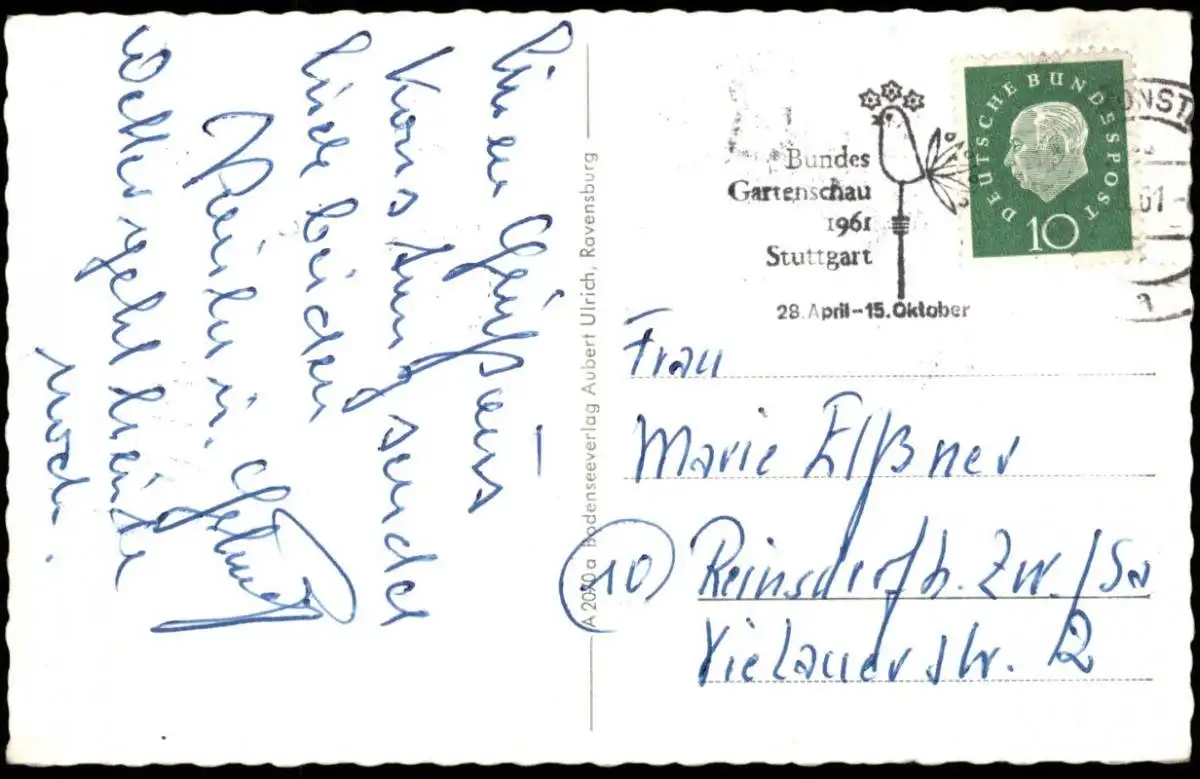 Einen Gruß aus
Konstanz sendet
Euch beiden
u.
Wetter geht heute
noch.
A 2020a Bodenseeverlag Aubert Ulrich, Ravensburg
Bundes
Gartenschau
1961
Stuttgart
28. April-15. Oktober
DEUTSCHE BUNDESPOST
10
KONST
61
a
Frau
Marie Elßner
(10) Reinsdorf b. Zw./Sa
Vielauerstr. 2